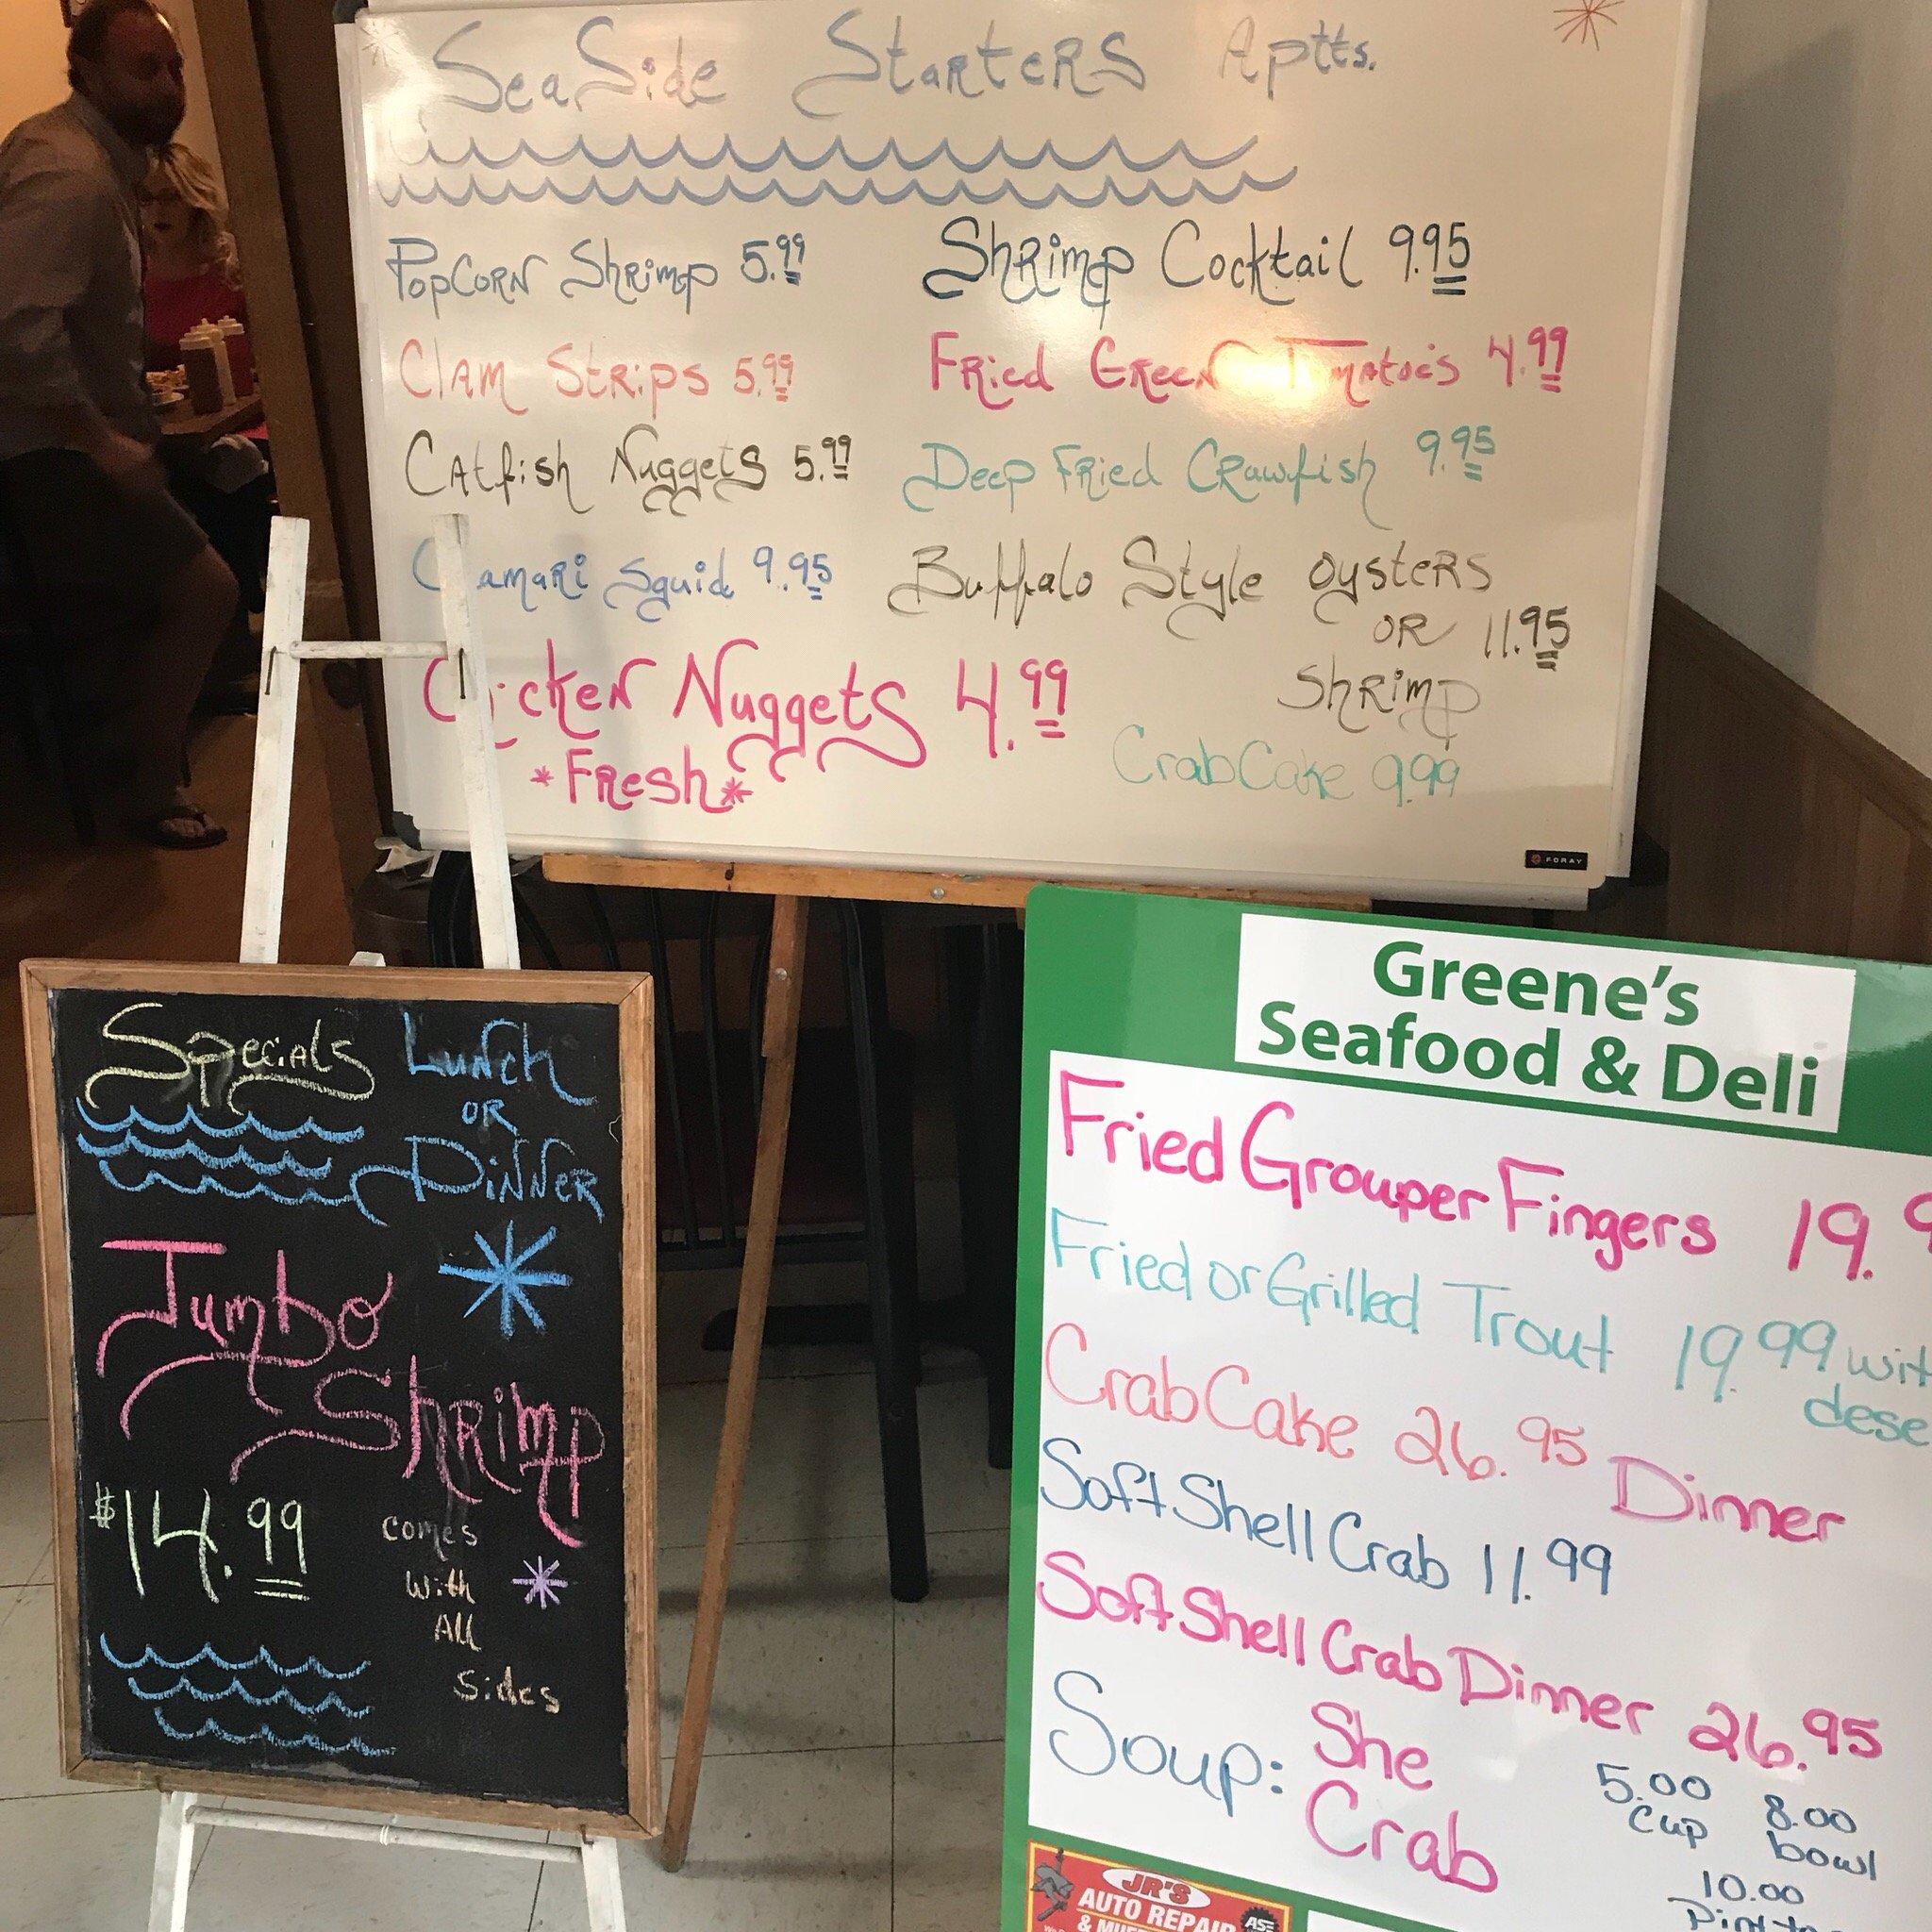 SeaSide Starters Aptts.
PopCorn Shrimp 5.99
Clam Strips 5.99
Catfish Nuggets 5.99
amari Squid 9.95
icken Nuggets 4.99
*Fresh*
Shrimp Cocktail 9.95
Fried Green Tomatoe's 4.99
Deep Fried Crawfish 9.95
Buffalo Style Oysters
OR 11.95
Shrimp
CrabCake 9.99
FORAY
Specials Lunch
OR
Dinner
Jumbo
Shrimp
$14.99
comes
with
All
Sides
Greene's
Seafood & Deli
Fried Grouper Fingers 19.9
Fried or Grilled Trout 19.99 wit
dese
Crab Cake 26.95 Dinner
Soft Shell Crab 11.99
Soft Shell Crab Dinner 26.95
Soup: She
Crab
5.00
cup
8.00
bowl
10.00
JR'S
AUTO REPAIR
ASE